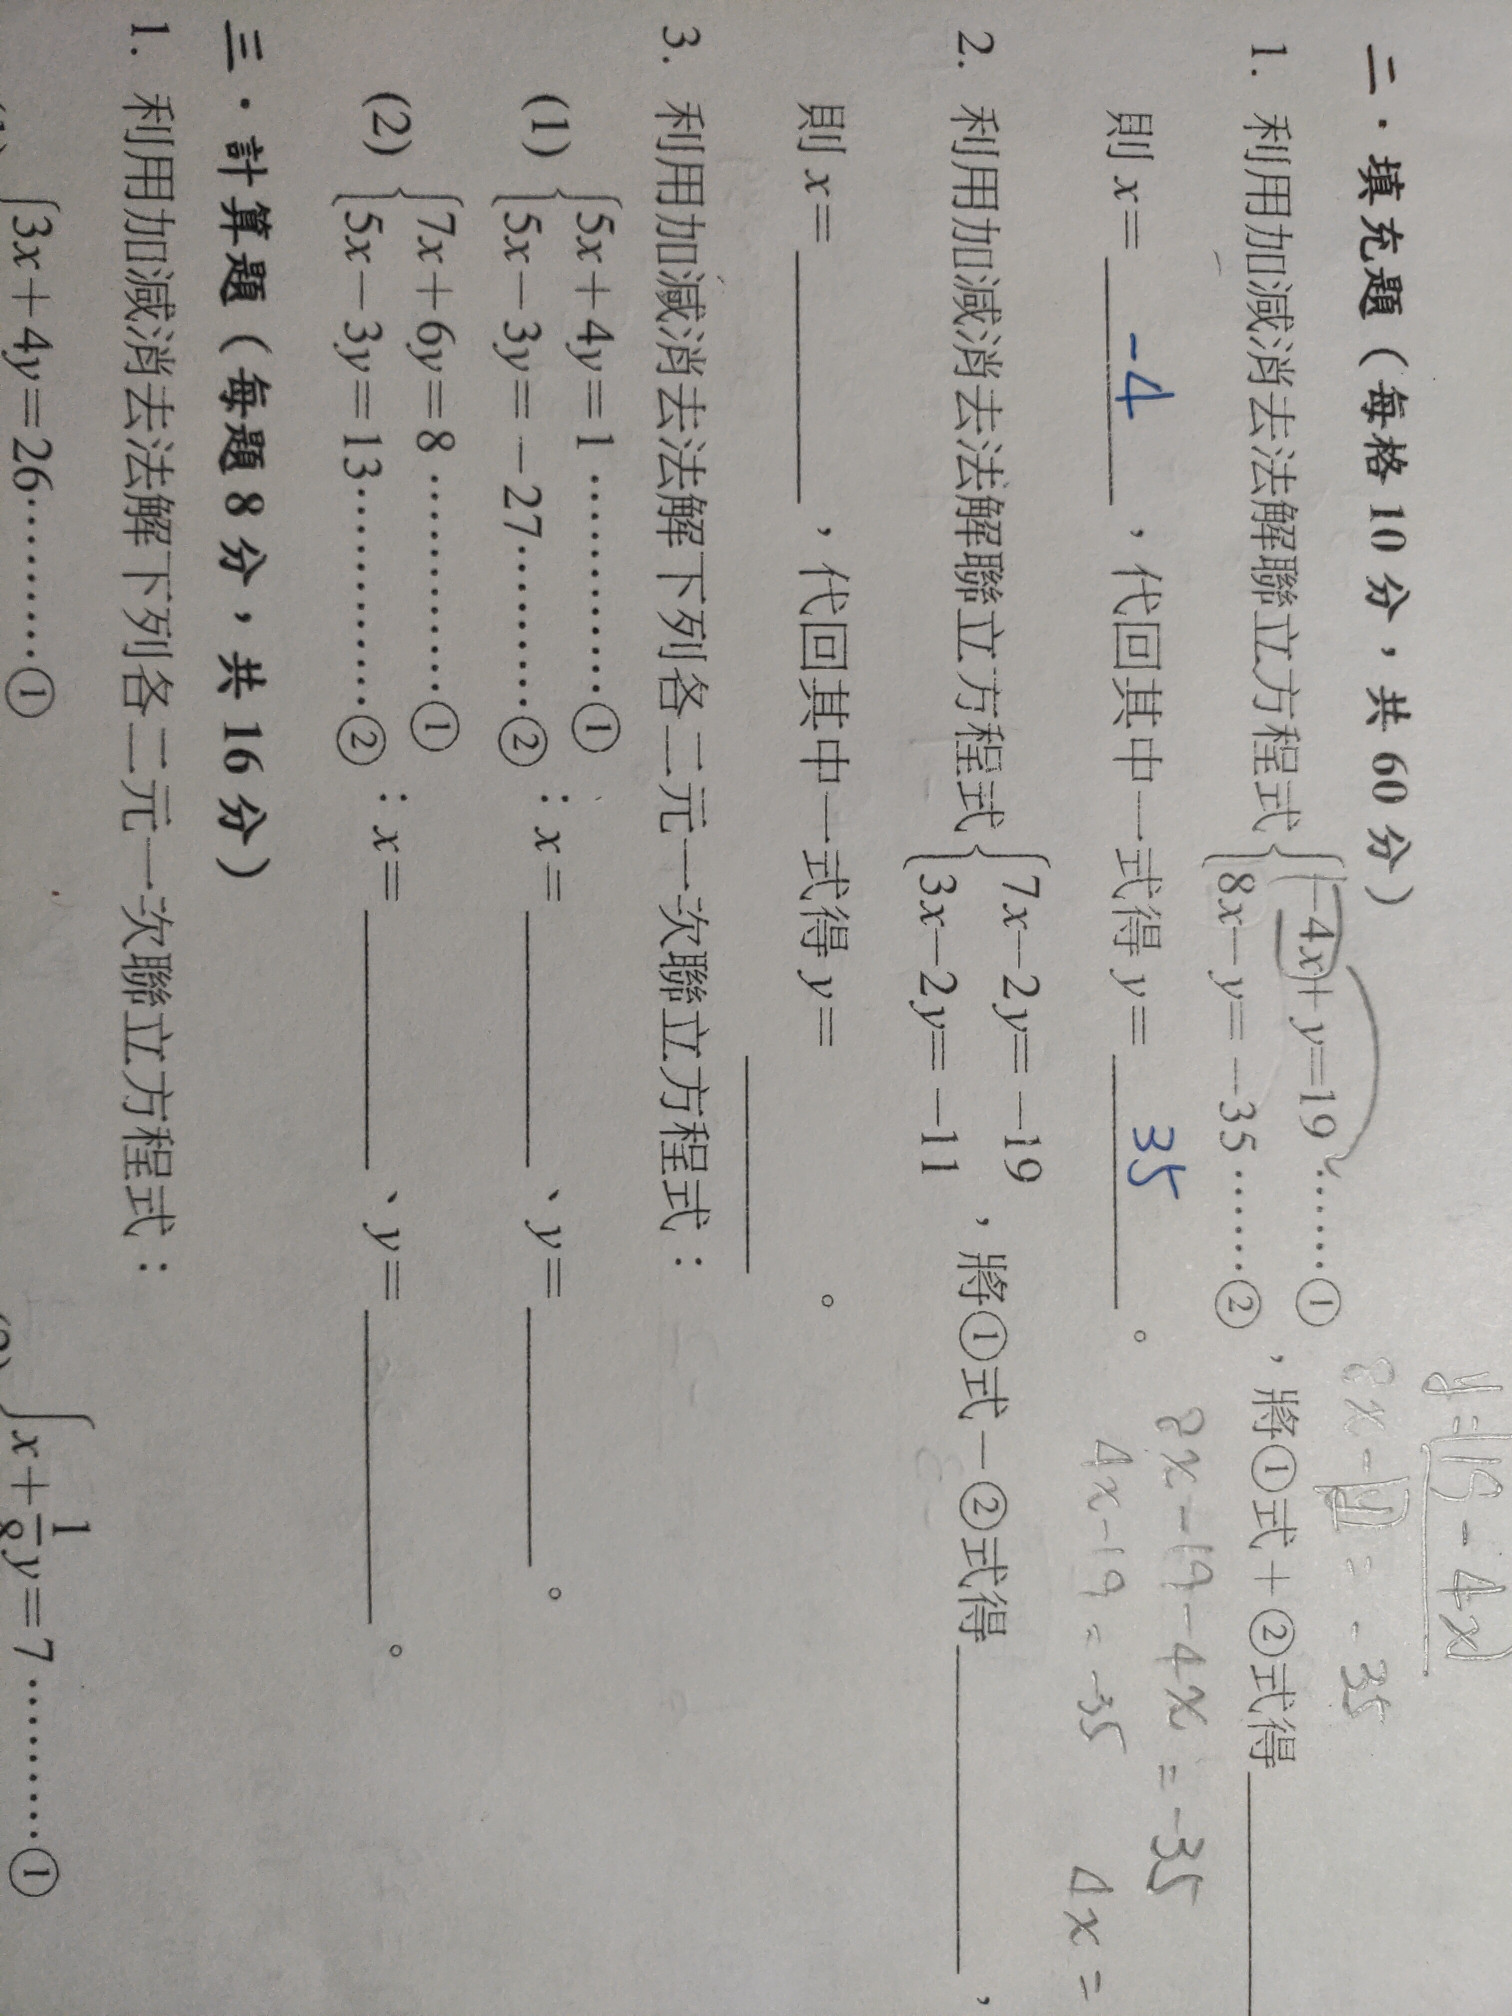 二．填充題（每格 10 分，共 60 分）
y=19-4x
8x-y=-35
1. 利用加減消去法解聯立方程式 { -4x+y=19……①
8x-y=-35……② ，將①式＋②式得________
則 x= -4 ，代回其中一式得 y= 35 。
8x-19-4x=-35
4x-19=-35
4x=
2. 利用加減消去法解聯立方程式 { 7x-2y=-19
3x-2y=-11 ，將①式－②式得________，
則 x=________，代回其中一式得 y=________。
3. 利用加減消去法解下列各二元一次聯立方程式：
(1) { 5x+4y=1…………①
5x-3y=-27………② ：x=________、y=________。
(2) { 7x+6y=8…………①
5x-3y=13…………② ：x=________、y=________。
三．計算題（每題 8 分，共 16 分）
1. 利用加減消去法解下列各二元一次聯立方程式：
(1) { 3x+4y=26…………①
(2) { x+1/8y=7…………①